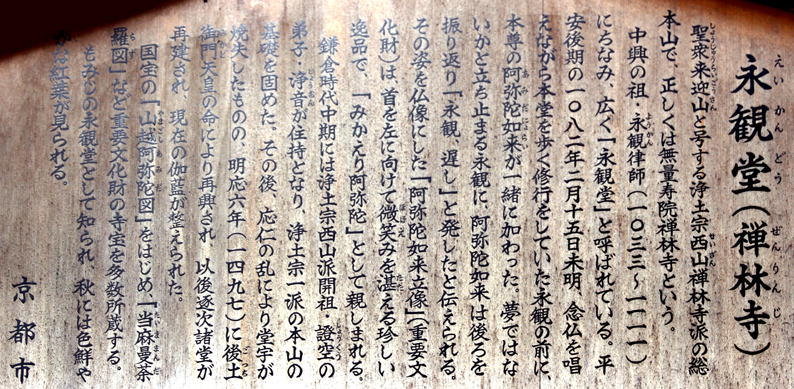 永観堂（禅林寺）
聖衆来迎山と号する浄土宗西山禅林寺派の総
本山で、正しくは無量寿院禅林寺という。
中興の祖・永観律師（一〇三三～一一一一）
にちなみ、広く「永観堂」と呼ばれている。平
安後期の一〇八二年二月十五日未明、念仏を唱
えながら本堂を歩く修行をしていた永観の前に、
本尊の阿弥陀如来が一緒に加わった。夢ではな
いかと立ち止まる永観に、阿弥陀如来は後ろを
振り返り「永観、遅し」と発したと伝えられる。
その姿を仏像にした「阿弥陀如来立像」（重要文
化財）は、首を左に向けて微笑みを湛える珍しい
逸品で、「みかえり阿弥陀」として親しまれる。
鎌倉時代中期には浄土宗西山派開祖・證空の
弟子・浄音が住持となり、浄土宗一派の本山の
基礎を固めた。その後、応仁の乱により堂宇が
焼失したものの、明応六年（一四九七）に後土
御門天皇の命により再興され、以後逐次諸堂が
再建され、現在の伽藍が整えられた。
国宝の「山越阿弥陀図」をはじめ、「当麻曼荼
羅図」など重要文化財の寺宝を多数所蔵する。
もみじの永観堂として知られ、秋には色鮮や
かな紅葉が見られる。
京都市